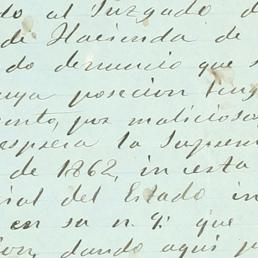 do al Juzgado d
de Hacienda de
do denuncio que s
uya posecion teng
ento, por malicioso,
espsera la Suprem
de 1862, in esta
ial del Estado in
en su n. 9: que
ion, dando aqui p